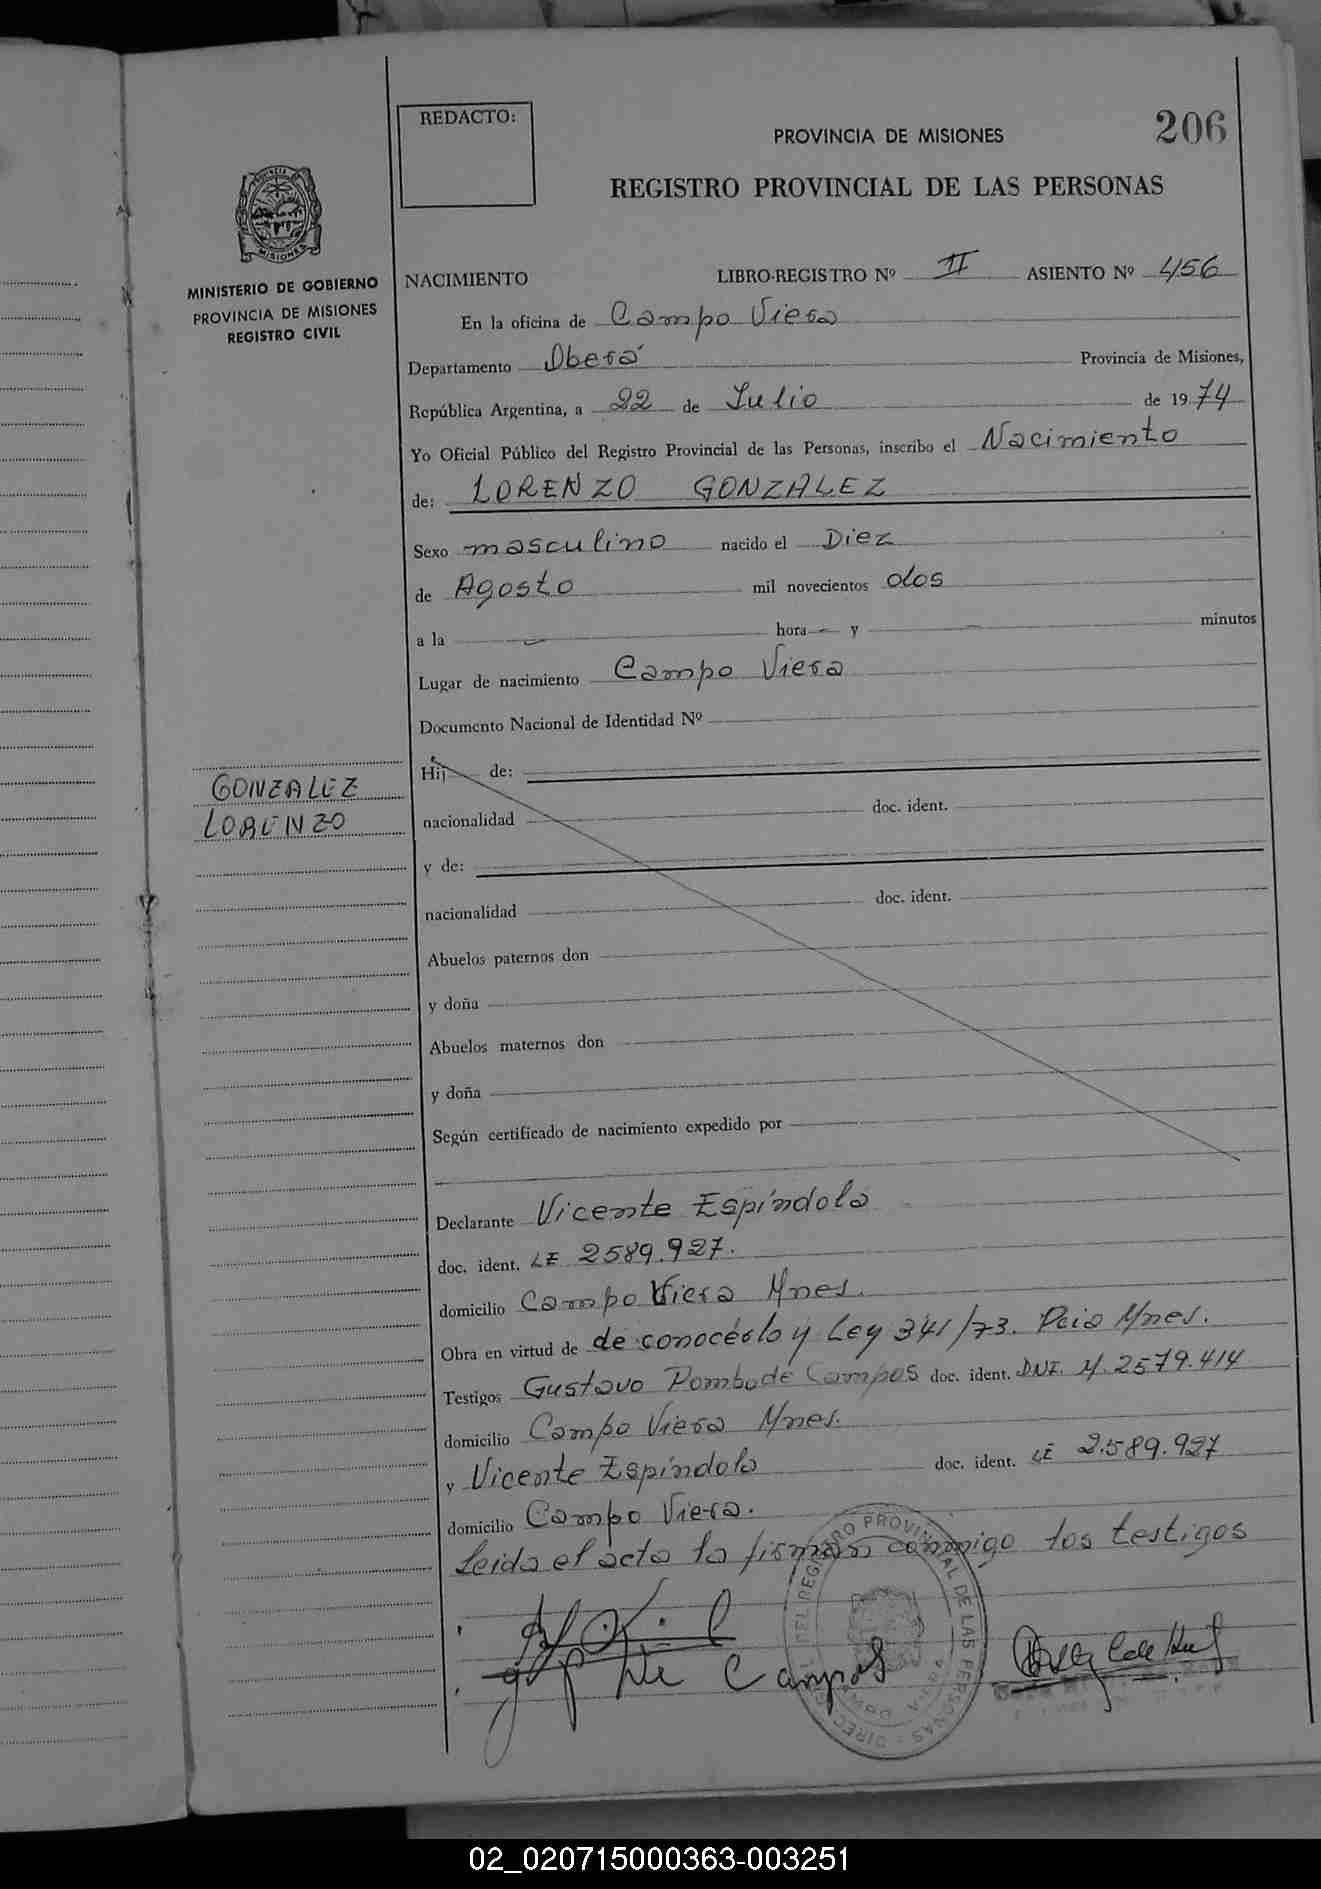 REDACTO:
206
PROVINCIA DE MISIONES
REGISTRO PROVINCIAL DE LAS PERSONAS
PROVINCIA DE
MISIONES
MINISTERIO DE GOBIERNO
PROVINCIA DE MISIONES
REGISTRO CIVIL
NACIMIENTO LIBRO-REGISTRO Nº II ASIENTO Nº 456
En la oficina de Campo Viera
Departamento Oberá Provincia de Misiones,
República Argentina, a 22 de Julio de 1974
Yo Oficial Público del Registro Provincial de las Personas, inscribo el Nacimiento
de: LORENZO GONZALEZ
Sexo masculino nacido el Diez
de Agosto mil novecientos dos
a la hora y minutos
Lugar de nacimiento Campo Viera
Documento Nacional de Identidad Nº
Hij de:
GONZALEZ
LORENZO
nacionalidad doc. ident.
y de:
nacionalidad doc. ident.
Abuelos paternos don
y doña
Abuelos maternos don
y doña
Según certificado de nacimiento expedido por
Declarante Vicente Espíndola
doc. ident. LE 2589.927.
domicilio Campo Viera Mnes.
Obra en virtud de de conocerlo y Ley 341/73. Pcia Mnes.
Testigos Gustavo Pombo de Campos doc. ident. DNI. M. 2579.414
domicilio Campo Viera Mnes.
y Vicente Espíndola doc. ident. LE 2.589.927
domicilio Campo Viera.
Leido el acta la firman conmigo los testigos
de Campos
02_020715000363-003251